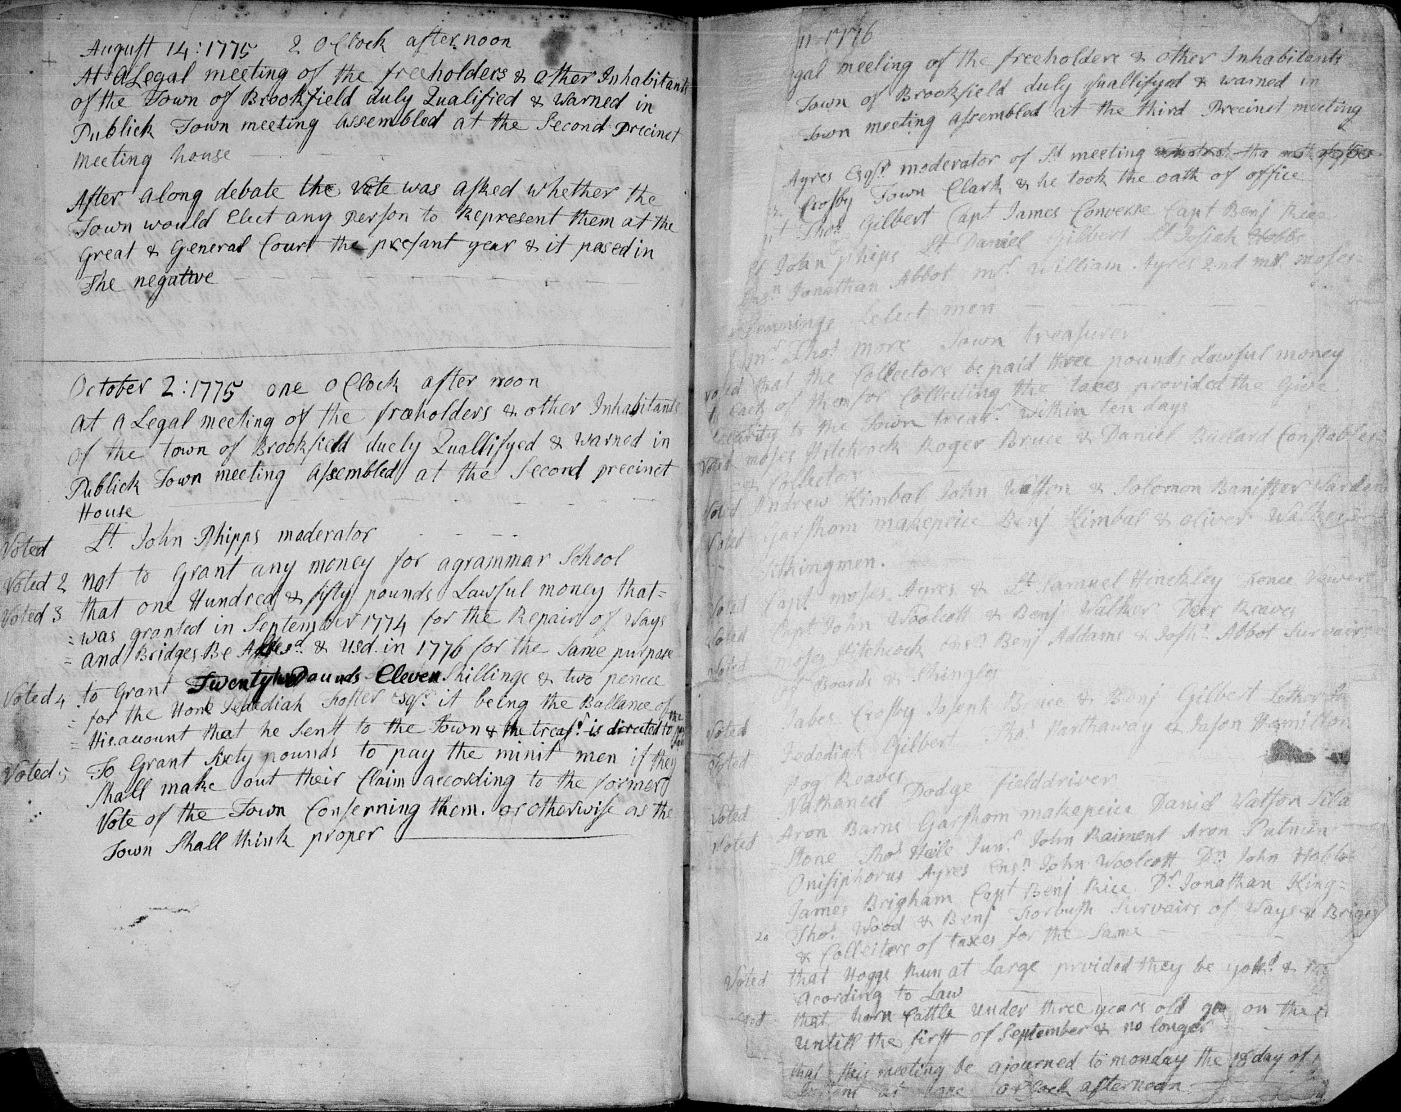 August 14: 1775 2 O Clock after noon
At a Legal meeting of the freeholders & other Inhabitants
of the Town of Brookfield duly Qualified & warned in
Publick Town meeting assembled at the Second Precinct
meeting house
After along debate the Vote was asked whether the
Town would Elect any person to Represent them at the
Great & General Court the presant year & it pased in
The negative
October 2: 1775 one O Clock after noon
at a Legal meeting of the freeholders & other Inhabitants
of the town of Brookfield duely Quallifyed & warned in
Publick Town meeting assembled at the Second precinct
House
Voted Lt. John Phipps moderator
Voted 2 not to Grant any money for agrammar School
Voted 3 that one Hundred & fifty pounds Lawful money that=
= was granted in September 1774 for the Repair of Ways
= and Bridges Be & usd. in 1776 for the Same purpose
Voted 4 to Grant Twenty Pounds Eleven Shillings & two pence
= for the Hon. Jedediah Foster Esqr. it being the Ballance of
= His account that he Sent to the Town & the treasr. is directed to
Voted 5 To Grant sixty pounds to pay the minit men if they
Shall make out their Claim according to the former
Vote of the Town Conserning them. or otherwise as the
Town Shall think proper
1776
gal meeting of the freeholders & other Inhabitants
Town of Brookfield duly Quallifyed & warned in
Town meeting assembled at the third Precinct meeting
Ayres Esqr. moderator of Sd meeting
Crosby Town Clark & he took the oath of office
Thos. Gilbert Capt James Converse Capt Benj Rice
John phips Lt Daniel Gilbert Lt Hobbs
Ensn Jonathan Abbot mr. William Ayres 2nd mr. moses
Jennings Select men
mr. Thos. more Town treasurer
Voted that the Collectors be paid three pounds Lawful money
Each of them for Collecting the taxes provided the Give
Security to the Town treasr. within ten days
Voted moses Hitchcock Roger Bruce & Daniel Bullard Constables
& Collector
Voted Andrew Kimbal John Watson & Solomon Banister Warden
Voted Garshom makepeice Benj Kimbal & oliver Walker
tithingmen.
Voted Capt moses Ayres & Lt. Samuel Hinckley Fence Viewers
Voted Capt John Woolcott & Benj Walker Deer Reaves
Voted moses Hitchcock Ensn. Benj Addams & Joshr. Abbot Survairs
of Boards & Shingles
Voted Jabes Crosby Joseph Bruce & Benj Gilbert
Voted Jedediah Gilbert Thos Harthaway & Jason Hamilton
Hog Reaves
Voted Nathaniel Dodge field driver
Voted Aron Barns Garshom makepeice Daniel Watson Sila
Stone Thos. Hale Junr. John Raiment Aron Putnum
Onisiphorus Ayres Ensn. John Woolcott Dn. John Hobbs
James Brigham Capt Benj Rice Dr Jonathan King=
Thos. Wood & Benj Forbush Survairs of Ways & Briges
& Collectors of taxes for the Same
Voted that Hoggs Run at Large provided they be yokd. &
Acording to Law
that horn Cattle under three years old go on the
untill the first of September & no longer
that this meeting be ajourned to monday the 18 day of
at one O Clock afternoon